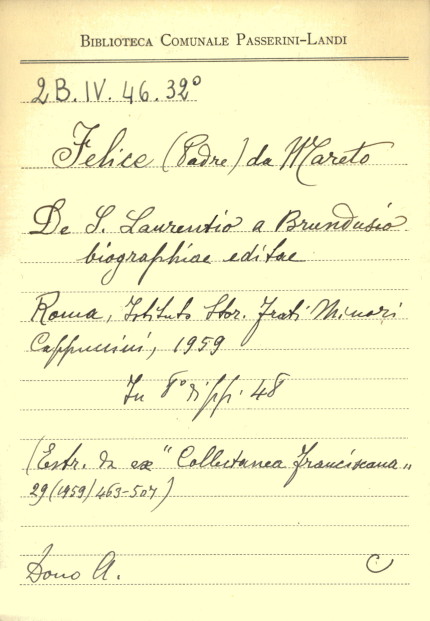 BIBLIOTECA COMUNALE PASSERINI-LANDI
2B. IV. 46. 32°
Felice (Padre) da Mareto
De S. Laurentio a Brundusio
biographiae editae
Roma, Istituto Stor. Frati Minori
Cappuccini, 1959
In 8° di pp. 48
(Estr. da ex "Collectanea franciscana"
29 (1959) 463-507)
Dono A.
C